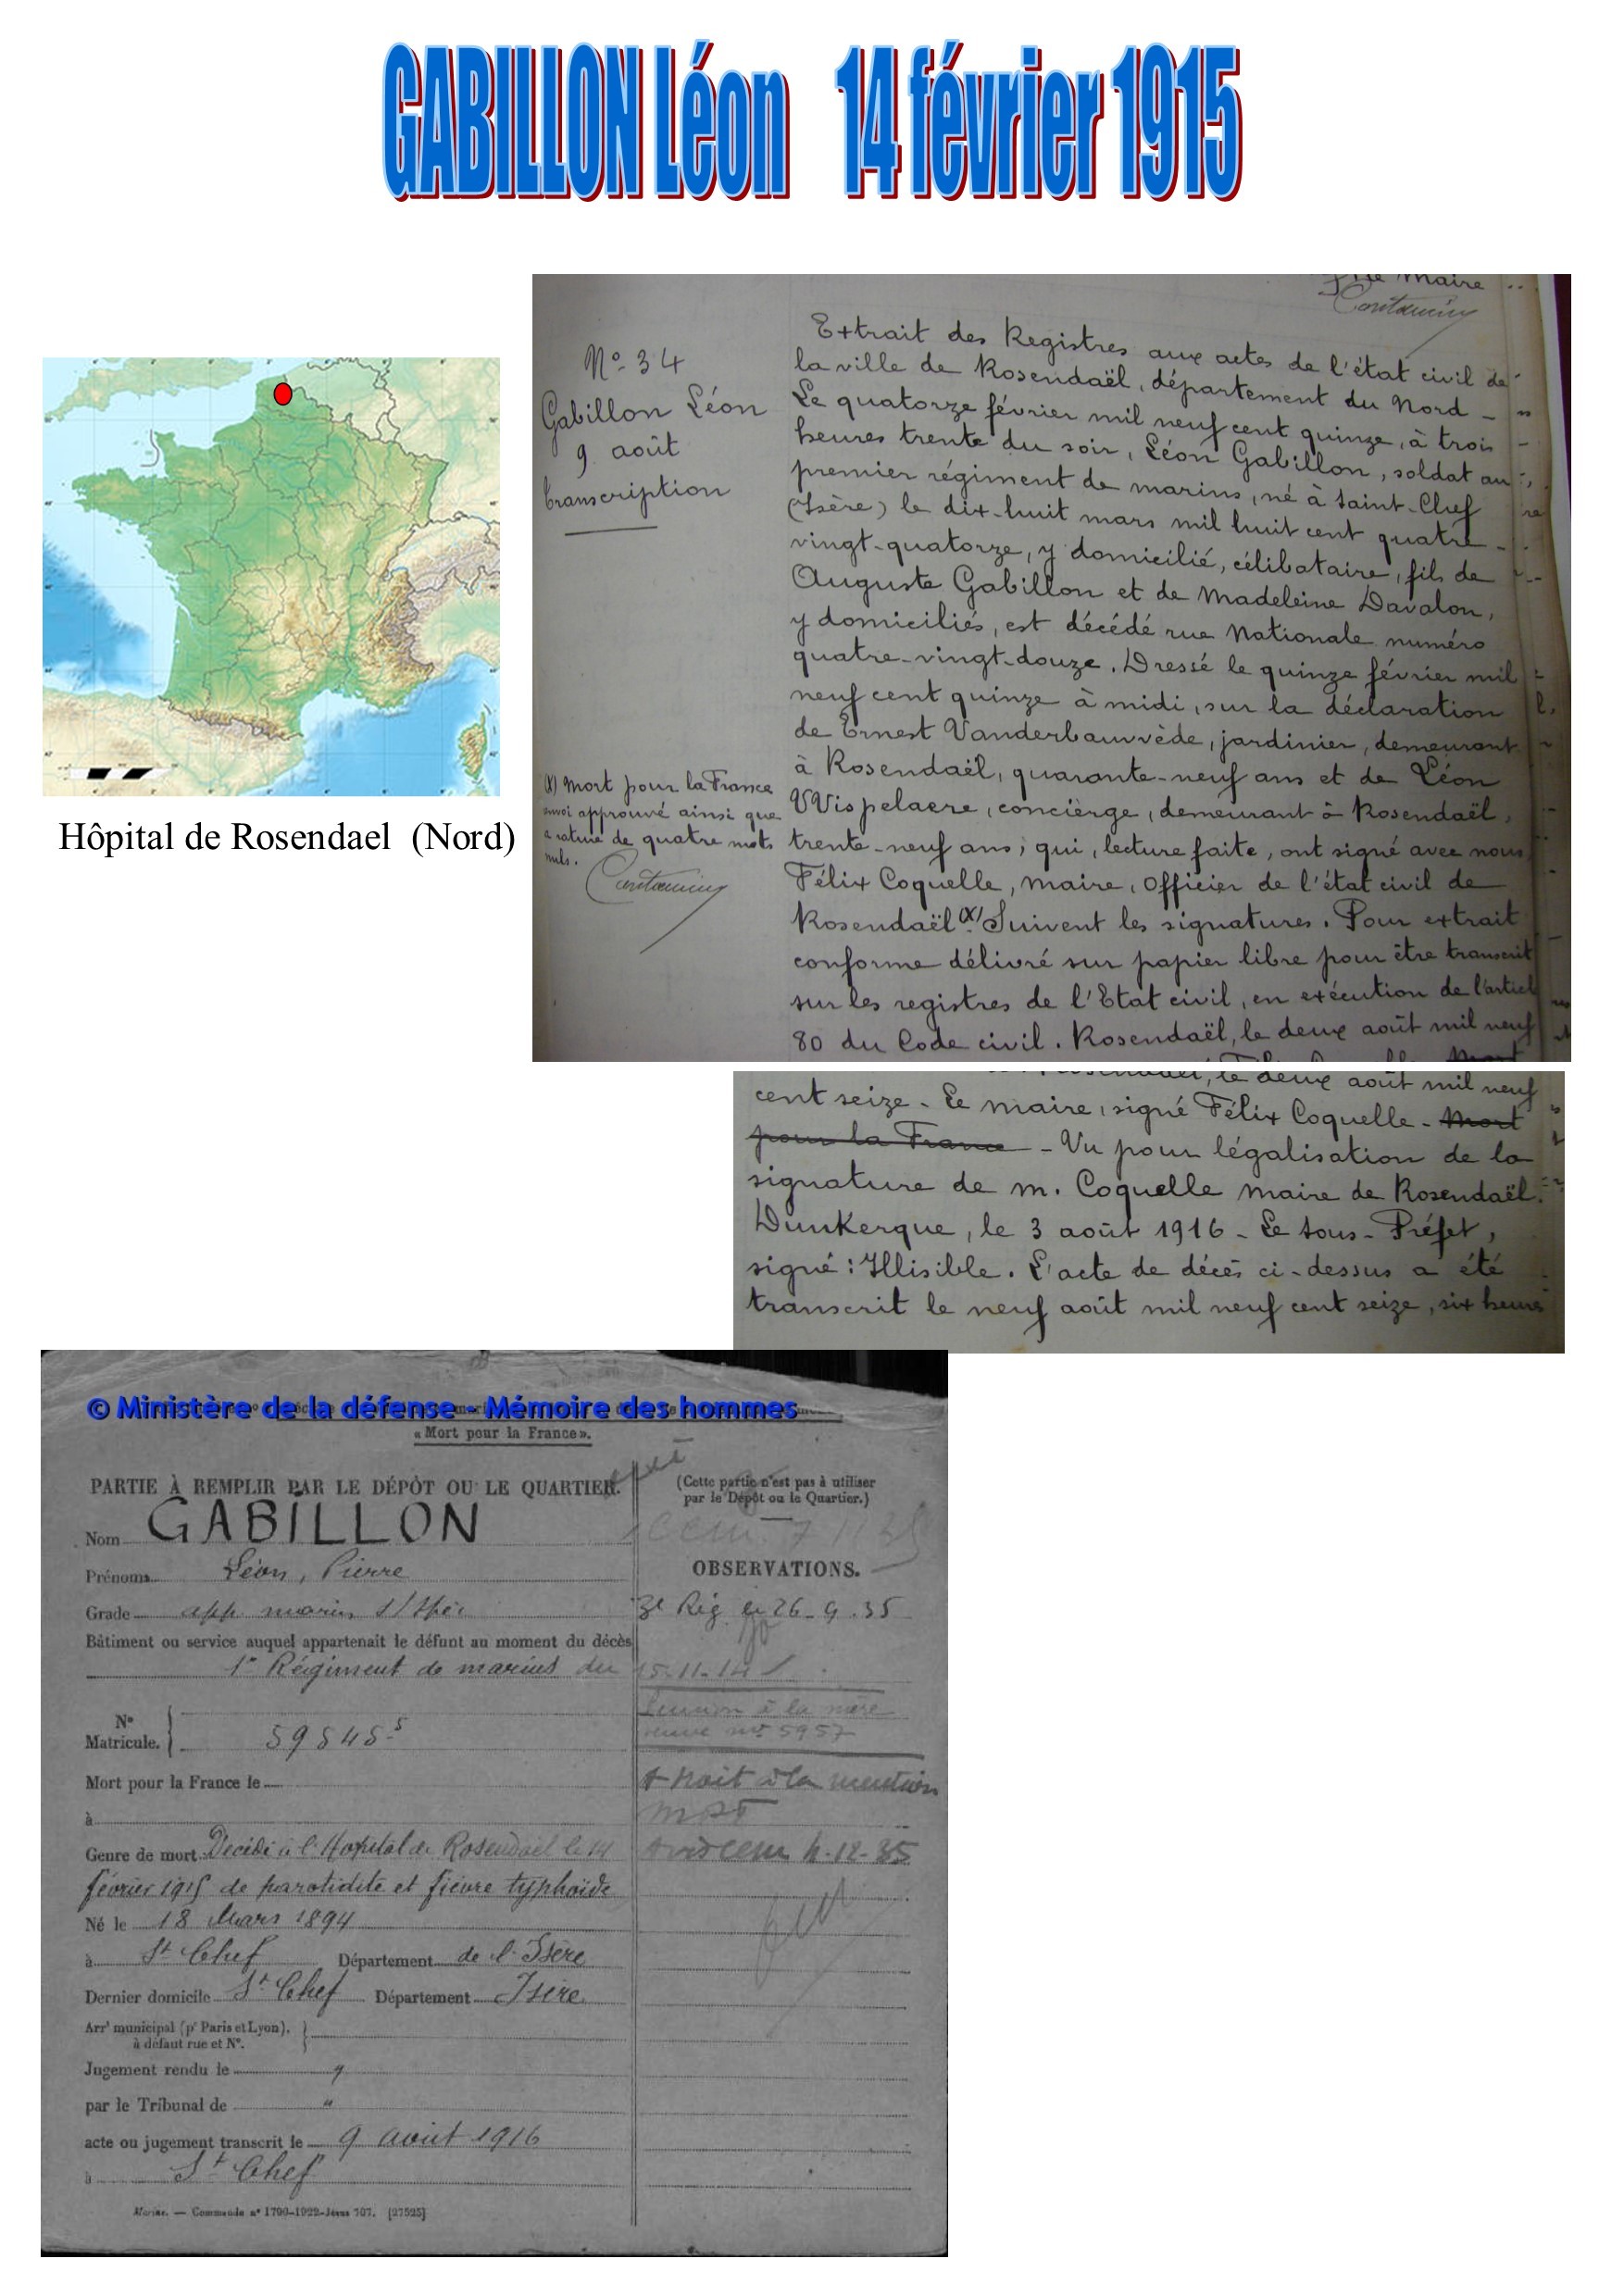 GABILLON Léon 14 février 1915
Hôpital de Rosendael (Nord)
le Maire
Contamin
N° 34
Gabillon Léon
9 août
transcription
Extrait des Registres aux actes de l'état civil de
la ville de Rosendaël, département du Nord -
Le quatorze février mil neuf cent quinze, à trois
heures trente du soir, Léon Gabillon, soldat au
premier régiment de marins, né à Saint-Chef
(Isère) le dix-huit mars mil huit cent quatre-
vingt-quatorze, y domicilié, célibataire, fils de
Auguste Gabillon et de Madeleine Davalon,
y domiciliés, est décédé rue Nationale numéro
quatre-vingt-douze. Dressé le quinze février mil
neuf cent quinze à midi, sur la déclaration
de Ernest Vanderbauvède, jardinier, demeurant
à Rosendaël, quarante-neuf ans et de Léon
VVispelaere, concierge, demeurant à Rosendaël,
trente-neuf ans, qui, lecture faite, ont signé avec nous
Félix Coquelle, maire, Officier de l'état civil de
Rosendaël (X) Suivent les signatures. Pour extrait
conforme délivré sur papier libre pour être transcrit
sur les registres de l'Etat civil, en exécution de l'article
80 du Code civil. Rosendaël, le deux août mil neuf
(X) Mort pour la France
envoi approuvé ainsi que
la rature de quatre mots
nuls.
Contamin
le deux août mil neuf
cent seize - Le maire, signé Félix Coquelle - Mort
pour la France - Vu pour légalisation de la
signature de M. Coquelle Maire de Rosendaël.
Dunkerque, le 3 août 1916 - Le Sous-Préfet,
signé : Illisible. L'acte de décès ci-dessus a été
transcrit le neuf août mil neuf cent seize, six heures
© Ministère de la défense - Mémoire des hommes
« Mort pour la France ».
PARTIE À REMPLIR PAR LE DÉPÔT OU LE QUARTIER.
Nom GABILLON
Prénoms Léon, Pierre
Grade app. marin s/spéc
Bâtiment ou service auquel appartenait le défunt au moment du décès
1er Régiment de marins du 15-11-14
N° Matricule. 59845-5
Mort pour la France le
à
Genre de mort Décédé à l'Hopital de Rosendael le 14
février 1915 de parotidite et fièvre typhoïde
Né le 18 Mars 1894
à St Chef Département de l'Isère
Dernier domicile St Chef Département Isère
Arrt municipal (pr Paris et Lyon),
à défaut rue et N°.
Jugement rendu le "
par le Tribunal de "
acte ou jugement transcrit le 9 août 1916
à St Chef
Marine. — Commande n° 1700-1922-Jésus 107. [27525]
(Cette partie n'est pas à utiliser
par le Dépôt ou le Quartier.)
OBSERVATIONS.
3e Rég 26-9.35
à la mère
veuve n° 5957
droit à la mention
12-35